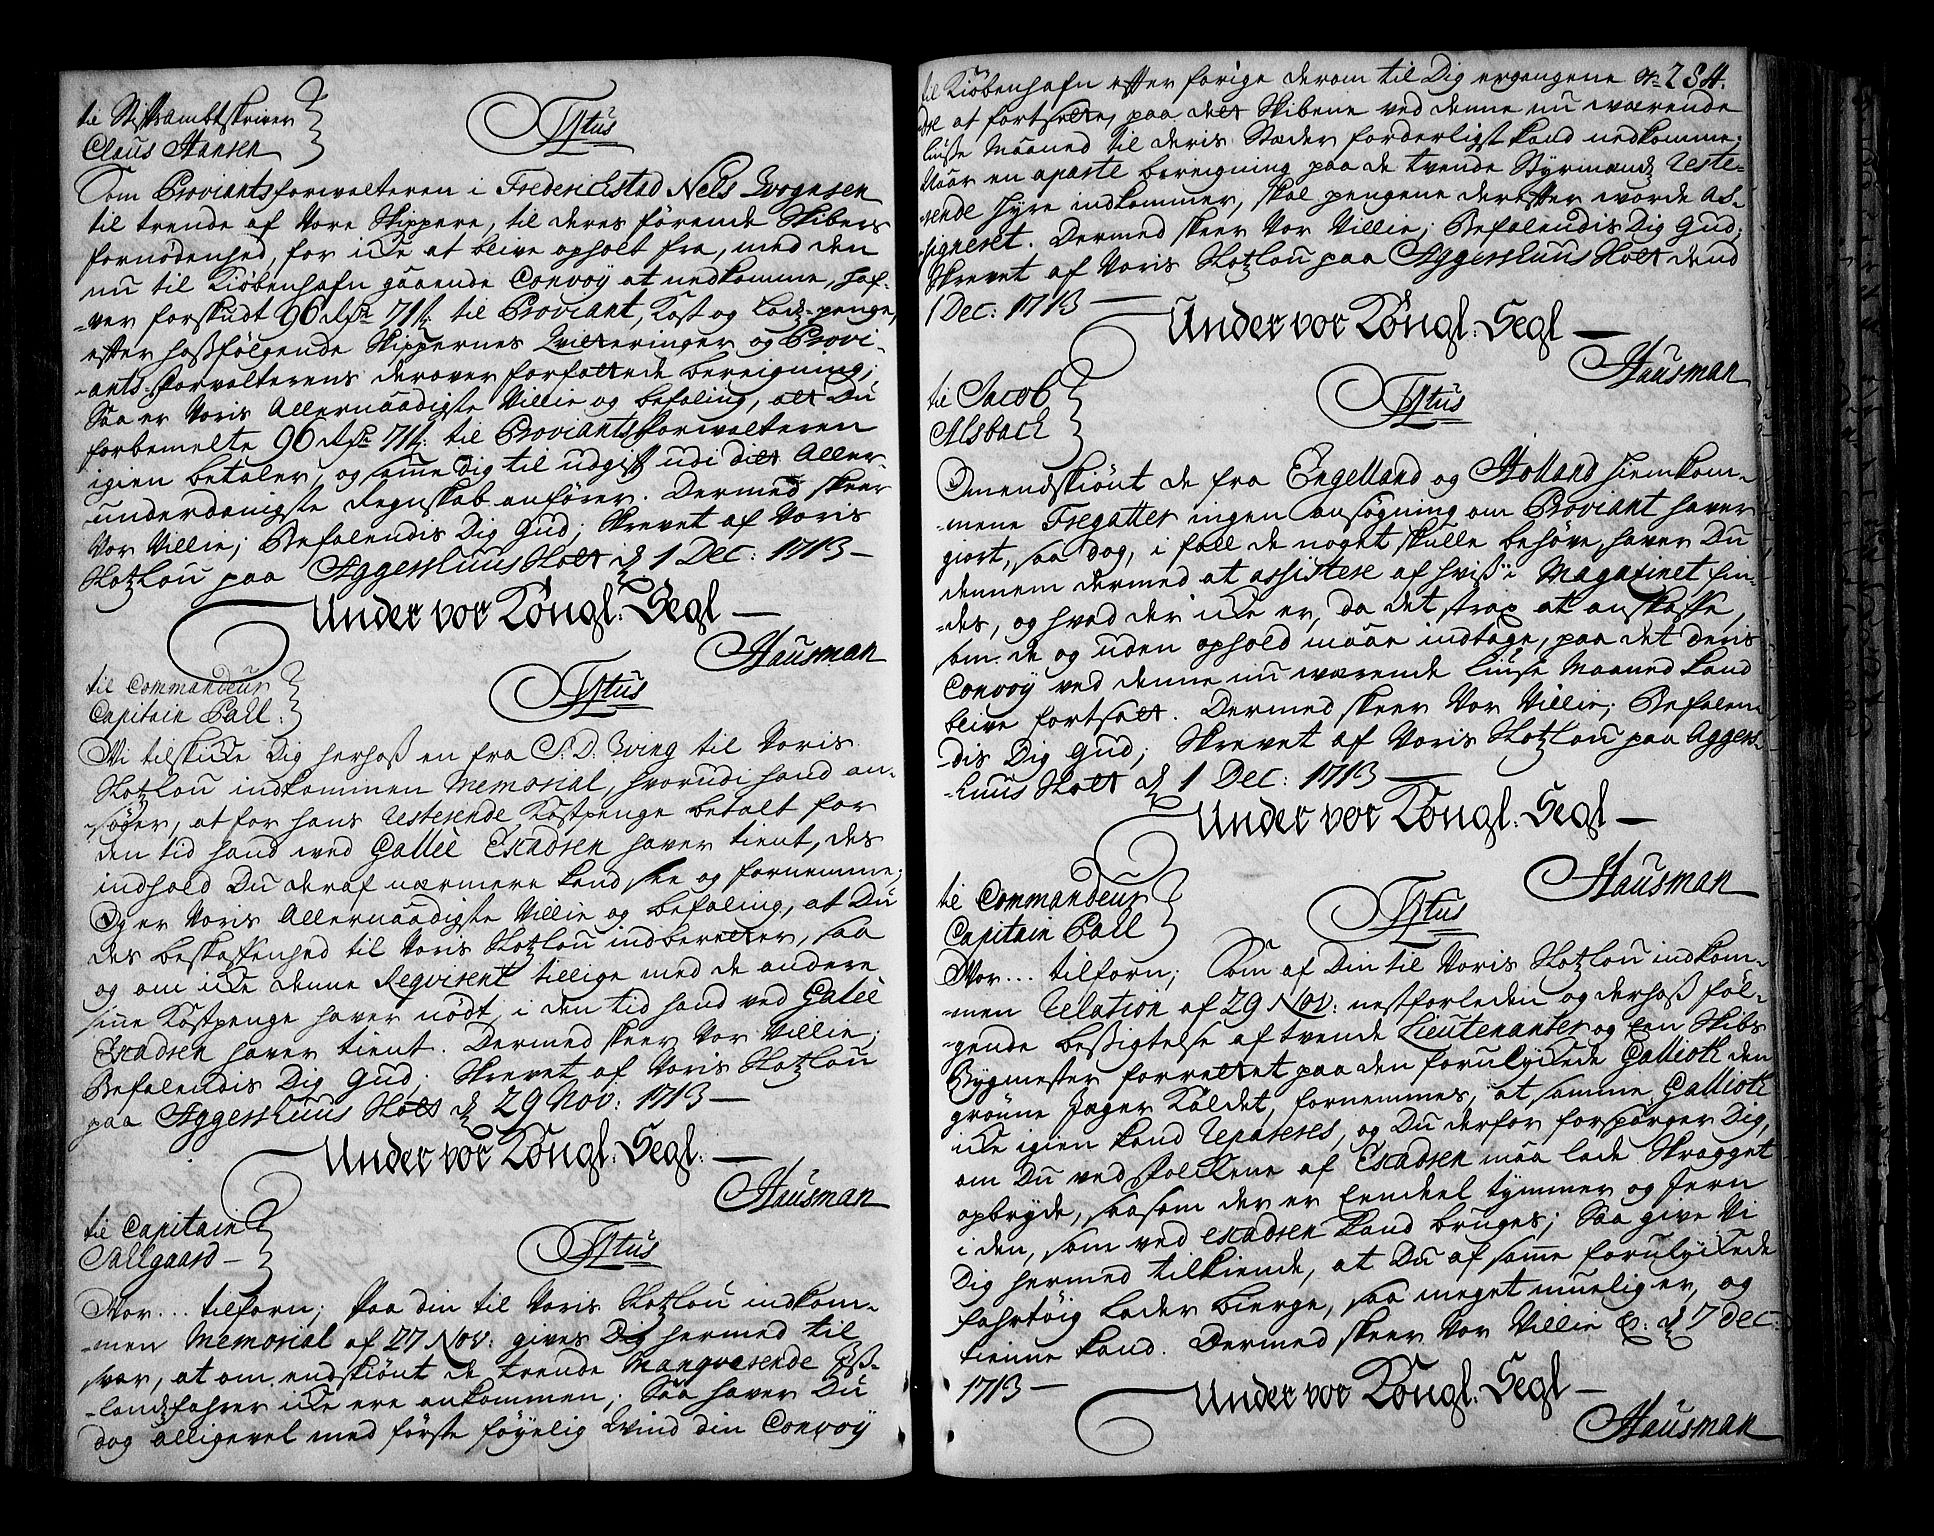 til Stiftsambtskriver
Claus Hansen
Tytus
Som Proviantsforvalteren i Friderichstad Nels Svognsen
til trende af Vore Skippere, til deres förende Skibers
fornödenhed, for icke at blive opholt fra, med den
nu til Kiöbenhafn gaaende Convoÿ at nedkomme, haf-
-ver forskudt 96 Rdr 71 s: til Proviant, Kost og Lods-penge,
efter hosfölgende Skippernes Qvitteringer og Provi-
-ants-Forvalterens derover forfattede bereigning;
Saa er Voris Allernaadigste Villie og befaling, att Du
forbemelte 96 Rdr 71 s: til Proviantsforvalteren
igien betaler, og samme dig til udgift udi ditt Aller-
-underdanigste Regnskab anförer. Dermed skeer
Vor Villie; Befalendis Dig Gud; Skrevet af Voris
Slotzlou paa Aggershuus Slott d 1 Dec: 1713 —
Under vor Kongl: Segl —
Hausman
til Commandeur
Capitain Pall.
Tytus
Vi tilskicke Dig herhoß en fra S. D. Qving til Voris
Slotzlou indkommen Memorial, hvorudi hand an-
-söger, at for hans resterende Kostpenge betalt for
den tid hand ved Galleë Escadren haver tient, des
indhold Du deraf nærmere kand see og fornemme;
Og er Voris Allernaadigste Villie og befaling, at Du
des beskaffenhed til Voris Slotzlou indberetter, saa
og om icke denne Reqvirent tillige med de andere
sine Kostpenge haver nödt, i den tid hand ved Galeë
Escadren haver tient. Dermed skeer Vor Villie;
Befalendis Dig Gud; Skrevet af Voris Slotzlou
paa Aggershuus Slott d 29 Nov: 1713 —
Under vor Kongl: Segl: —
Hausman
til Capitain
Pallgaard —
Tytus
Vor... tilforn; Paa din til Voris Slotzlou indkom-
-men Memorial af 27 Nov: gives Dig hermed til
svar, at om endskiönt de trende Manqverende Iiß-
-landsfahrer icke ere ankommen; Saa haver Du
dog alligevel med förste föyelig Wind din Convoÿ
til Kiöbenhafn efter forige derom til Dig ergangene Or- 284.
-dre at fortsette, paa dett Skibene ved denne nu værende
liuse Maaned til deris Stæder forderligst kand nedkomme;
Naar en aparte bereigning paa de tvende Styrmænds reste-
-rende Hyre indkommer, skal pengene derefter worde as-
-signeret. Dermed skeer Vor Villie; Befalendis Dig Gud;
Skrevet af Voris Slotzlou paa Aggershuus Slott dend
1 Dec: 1713 —
Under vor Kongl: Segl —
Hausman
til Jacob
Alsbach
Tytus
Omendskiönt de fra Engelland og Holland hiemkom-
-mene Fregatter ingen ansögning om Proviant haver
giort, saa dog, i fall de noget skulle behöve, haver Du
dennem dermed at assistere af hviß i Magazinet fin-
-des, og hvad der icke er, da det strax at anskaffe,
som de og uden ophold maae indtage, paa det deris
Convoÿ ved denne nu værende liuse Maaned kand
blive fortsatt. Dermed skeer Vor Villie; Befalen-
-dis Dig Gud; Skrevet af Voris Slotzlou paa Aggers-
-huus Slott d 1 Dec: 1713 —
Under vor Kongl: Segl —
Hausman
til Commandeur
Capitain Pall
Tytus
Vor... tilforn; Som af Din til Voris Slotzlou indkom-
-men Relation af 29 Nov: nestforleden og derhoß föl-
-gende besigtelse af tvende Lieutenanter og een Skibs
Bygmester forrettet paa den forulyckede Galliott den
gröune Jæger kaldet, fornemmes, at samme Galliott
icke igien kand repareres, og Du derfor forspörger Dig,
om Du ved Folckene af Escadren maa lade Skroget
opbryde, saasom der er Eendeel tymmer og Jern
i den, som ved escadren kand bruges; Saa give Vi
Dig hermed tilkiende, at Du af samme forulyckede
fahrtöig lader bierge, saa meget mueligt er, og
tienne kand. Dermed skeer Vor Villie &c: d 7 Dec:
1713 —
Under vor Kongl: Segl —
Hausman